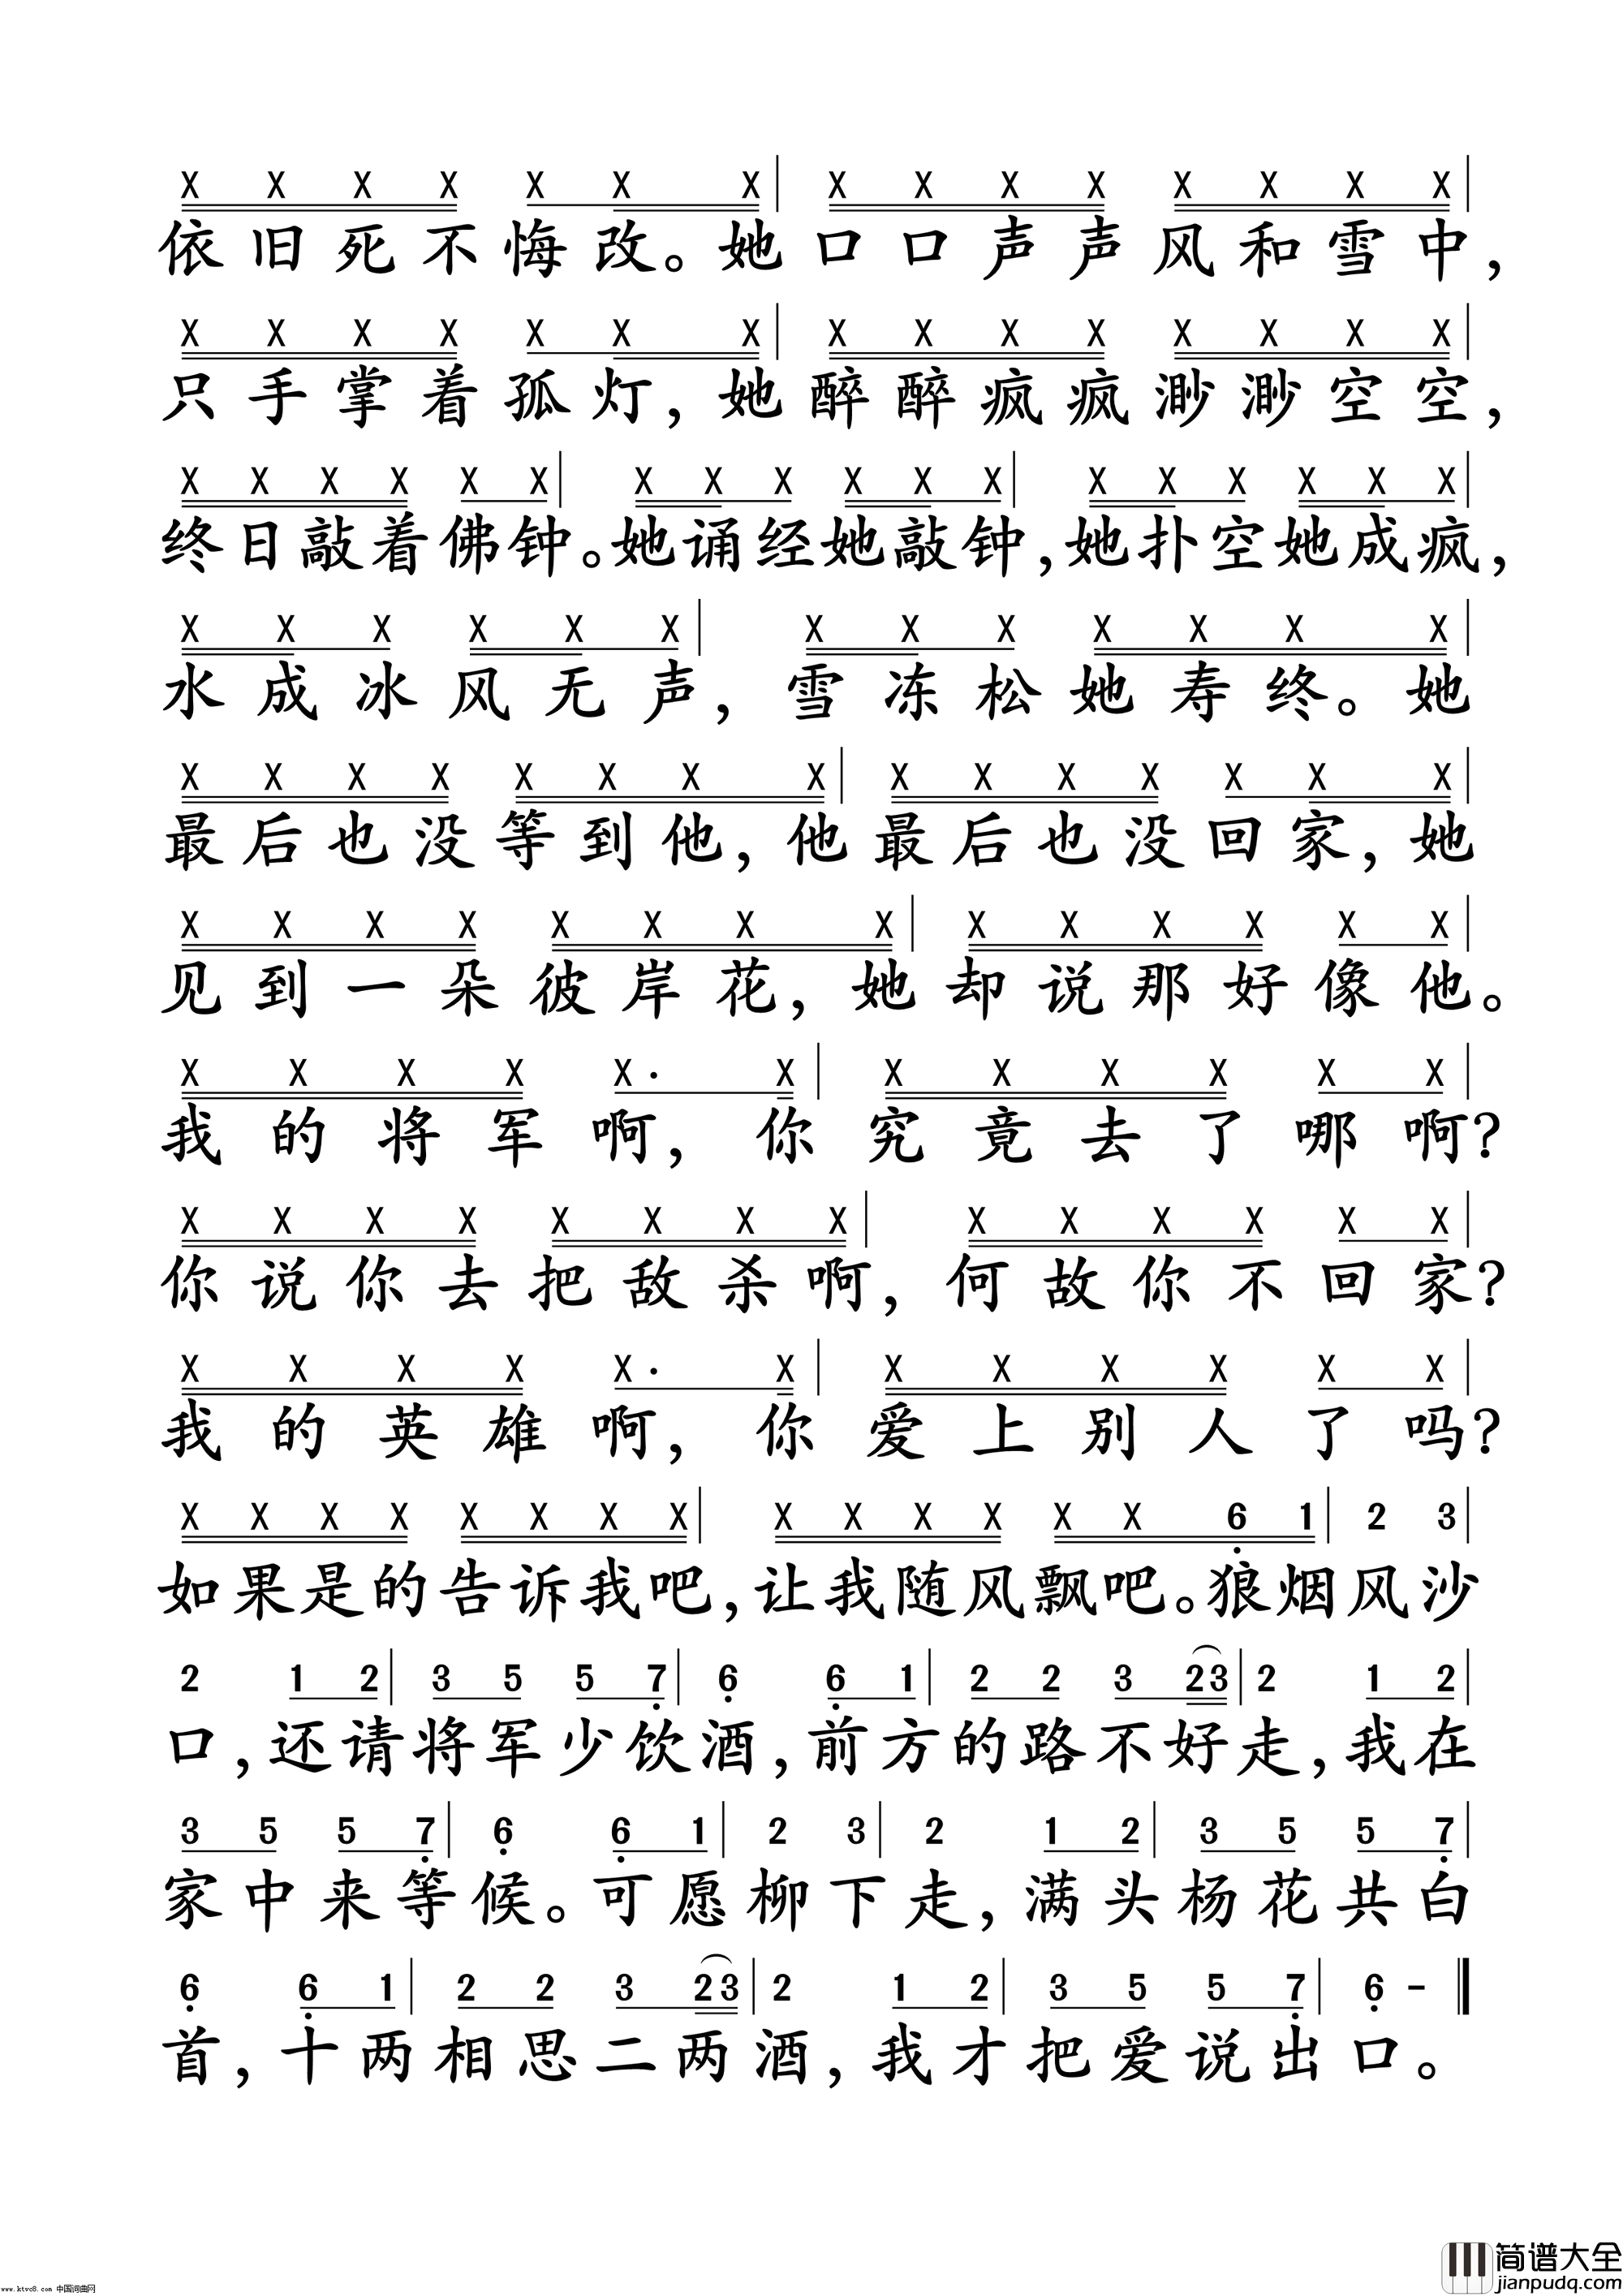 X X X X X X X | X X X X X X X X |
依旧死不悔改。她口口声声风和雪中，
X X X X X X X | X X X X X X X X |
只手掌着孤灯，她醉醉疯疯渺渺空空，
X X X X X X | X X X X X X | X X X X X X |
终日敲着佛钟。她诵经她敲钟，她扑空她成疯，
X X X X X X | X X X X X X X |
水成冰风无声，雪冻松她寿终。她
X X X X X X X X | X X X X X X X |
最后也没等到他，他最后也没回家，她
X X X X X X X X | X X X X X X |
见到一朵彼岸花，她却说那好像他。
X X X X X· X | X X X X X X |
我的将军啊，你究竟去了哪啊?
X X X X X X X X | X X X X X X |
你说你去把敌杀啊，何故你不回家?
X X X X X· X | X X X X X X |
我的英雄啊，你爱上别人了吗?
X X X X X X X X | X X X X X X 6 1 | 2 3 |
如果是的告诉我吧，让我随风飘吧。狼烟风沙
2 1 2 | 3 5 5 7 | 6 6 1 | 2 2 3 2 3 | 2 1 2 |
口，还请将军少饮酒，前方的路不好走，我在
3 5 5 7 | 6 6 1 | 2 3 | 2 1 2 | 3 5 5 7 |
家中来等候。可愿柳下走，满头杨花共白
6 6 1 | 2 2 3 2 3 | 2 1 2 | 3 5 5 7 | 6 - ‖
首，十两相思二两酒，我才把爱说出口。
简谱大全
jianpudq.com
www.ktvc8.com 中国词曲网